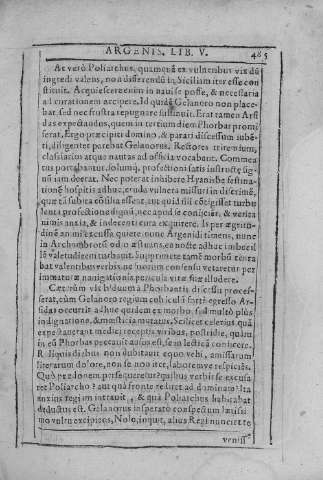 ARGENIS. LIB. V. 485
At verò Poliarchus, quamquā ex vulneribus vix dū
ingredi valens, non differendū in Siciliam iter esse con
stituit. Acquiescere enim in navi se posse, & necessaria
ad curationem accipere. Id quidē Gelanoro non place-
bat, sed nec frustra repugnare sustinuit. Erat tamen Arsi
das expectandus, quem in tertium diem Phorbas promi
serat, Ergo præcipiti domino, & parari discessum iuben-
ti, diligenter parebat Gelanorus. Rectores triremium,
classiarios atque nautas ad officia vocabant. Commea
tus portabantur, solumq; profectioni satis instructæ sign-
um iam deerat. Nec poterat inhibere Hyanisbe festina-
tionē hospitis adhuc cruda vulnera missuri in discrimē,
quæ tā subita cōsilia esset, aut quid sui cōtigisset turbu
lenta profectione dignū, nec apud se coniiciēs, & verita
nimis anxia, & indecenti cura exquirere. Is per ægritudi-
dinē animi excussa quiete nunc Argenidi timens, nunc
in Archombrotū odio æstuans, ea nocte adhuc imbecil
lē valetudinem turbavit. Supprimete tamē morbū tenta
bat valentibus verbis, ne suorum consensu vetaretur per
immaturæ navigationis pericula vitæ suæ illudere.
Cæterùm vix biduum à Phorbantis discessu præces-
serat, cùm Gelanoro regium cubiculū fortè egresso Ar-
sidas occurrit adhuc quidem ex morbo, sed multò plus
indignatione, & mœstitia mutatus. Scilicet celerius quā
expectaverant medici receptis viribus, postridie, quàm
in eū Phorbas precauit ausus est, se in lecticā coniicere.
Reliquis diebus non dubitavit equo vehi, amissarum
literarum dolore, non se non itere, laboremve respiciēs.
Quò pœdonem persequeretur? quibus verbis se excusa
ret Poliarcho? aut quâ fronte rediret ad dominam? Ita
anxius regiam intravit, & quâ Poliarchus habitabat
deductus est. Gelanorus insperato conspectum lætissi
mo vultu excipiens, Nolo, inquit, alius Regi nunciet te
veniss